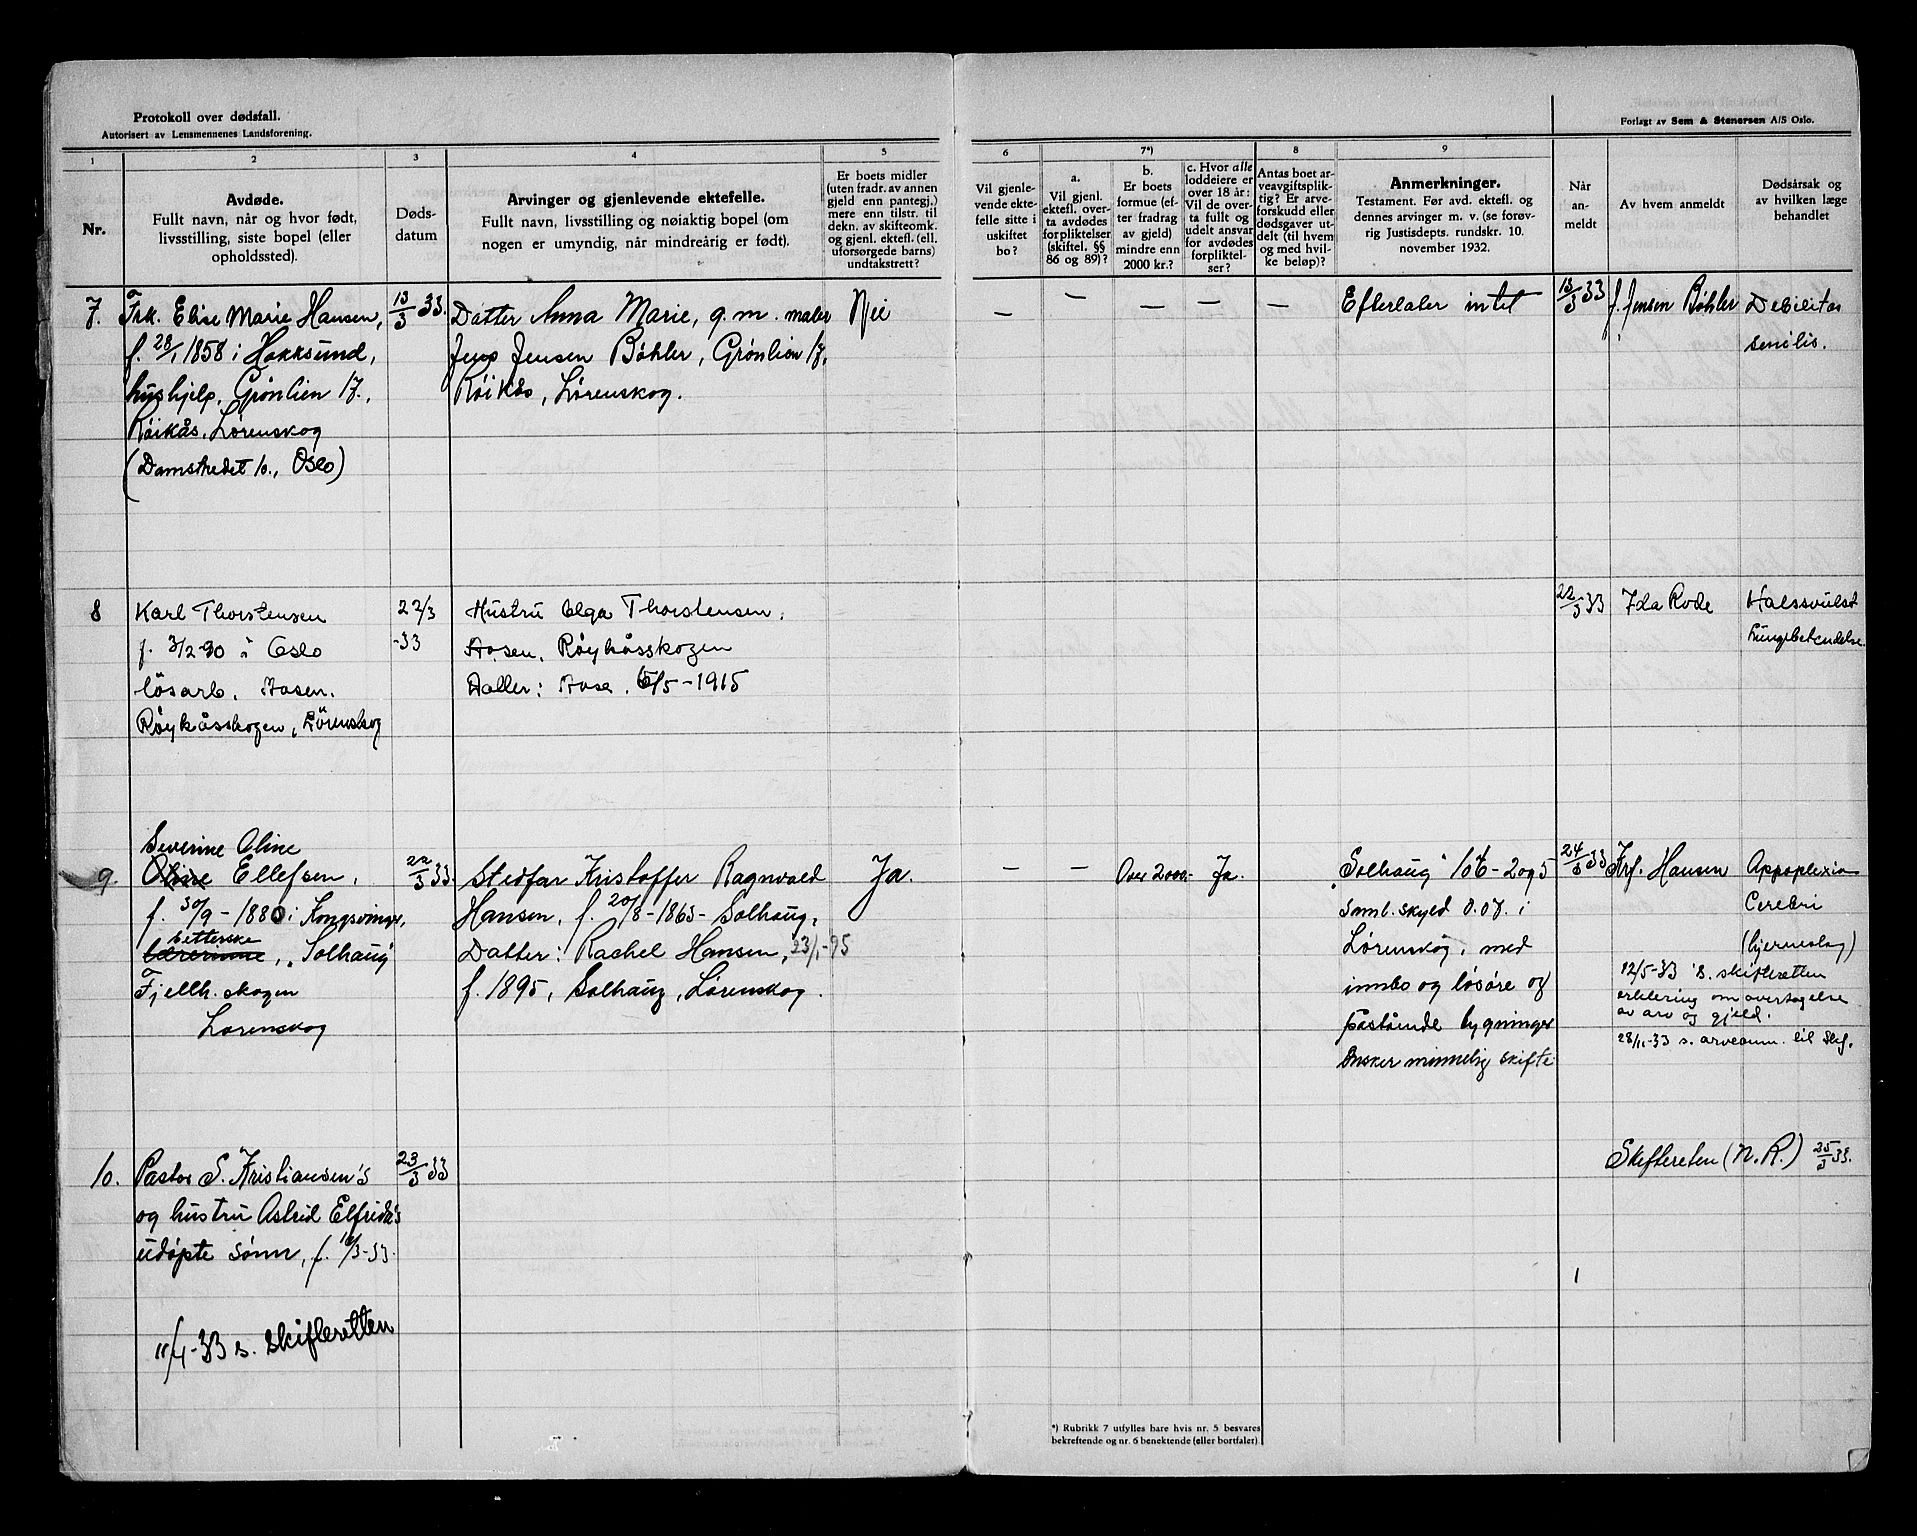 Protokoll over dødsfall.
Autorisert av Lensmennenes Landsforening.
Forlagt av Sem & Stenersen A/S Oslo.
1
2
3
4
5
6
7*)
8
9
Nr.
Avdøde.
Fullt navn, når og hvor født,
livsstilling, siste bopel (eller
opholdssted).
Døds-
datum
Arvinger og gjenlevende ektefelle.
Fullt navn, livsstilling og nøiaktig bopel (om
nogen er umyndig, når mindreårig er født).
Er boets midler
(uten fradr. av annen
gjeld enn pantegj.)
mere enn tilstr. til
dekn. av skifteomk.
og gjenl. ektef. (ell.
uforsørgede barns)
undtakstrett?
Vil gjenle-
vende ekte-
felle sitte i
uskiftet
bo?
a.
Vil gjenl.
ektefl. over-
ta avdødes
forpliktelser
(skiftel. §§
86 og 89)?
b.
Er boets
formue (ef-
ter fradrag
av gjeld)
mindre enn
2000 kr.?
c. Hvor alle
loddeiere er
over 18 år:
Vil de over-
ta fullt og
udelt ansvar
for avdødes
forpliktel-
ser?
Antas boet ar-
veavgiftsplik-
tig? Er arve-
forskudd eller
dødsgaver ut-
delt (til hvem
og med hvil-
ke beløp)?
Anmerkninger.
Testament. Før avd. ektefl. og
dennes arvinger m. v. (se forøv-
rig Justisdepts. rundskr. 10.
november 1932.
Når
an-
meldt
Av hvem anmeldt
Dødsårsak og
av hvilken læge
behandlet
7. Frk. Elise Marie Hansen,
f. 28/1 1858 i Hokksund,
hushjelp, Grønlien 17.,
Røikås, Lørenskog
(Damstredet 10., Oslo)
13/3 33.
Datter Anna Marie, g. m. maler
Jens Jensen Bøhler, Grønlien 17,
Røikås, Lørenskog.
Nei
— — — — —
Efterlater intet
13/3 33
f. Jensen Bøhler
Debilitas
senilis.
8 Karl Thorstensen
f. 3/2-90 i Oslo
løsarb. Aasen.
Røykåsskogen, Lörenskog
22/3
-33
Hustru Olga Thorstensen,
Aasen, Røykåsskogen
Datter: Aase, 6/5-1915
22/3 33
Ida Rode
Halssvulst
Lungebetendelse
9. Severine Oline
Oline Ellefsen,
f. 30/9-1880 i Kongsvinger,
betterske
lærerinne, "Solhaug"
Fjellh. skogen
Lørenskog
22/3 33.
Stedfar Kristoffer Ragnvald
Hansen, f. 20/8-1863- Solhaug,
Datter: Rachel Hansen, 23/1-95
f. 1895, Solhaug, Lørenskog.
Ja.
— —
Over 2000.-
Ja.
"Solhaug" 106-2095
Smbl. skyld 0.07. i
Lørenskog, med
innbo og løsøre og
påstående bygninger
Ønsker minnelig skifte
24/3 33
Krf. Hansen
Appoplexia
Cerebri
(hjerneslag)
12/5-33 s. skifteretten
erklæring om overtagelse
av arv og gjeld.
28/11-33 s. arveanm. til Skf.
10. Pastor S. Kristiansen's
og hustru Astrid Elfrida's
udøpte sønn, f. 18/3-33.
23/3 33
Skifteretten (N. R.) 25/3 33.
11/4-33 s. skifteretten
*) Rubrikk 7 utfylles bare hvis nr. 5 besvares
bekreftende og nr. 6 benektende (eller bortfaler)